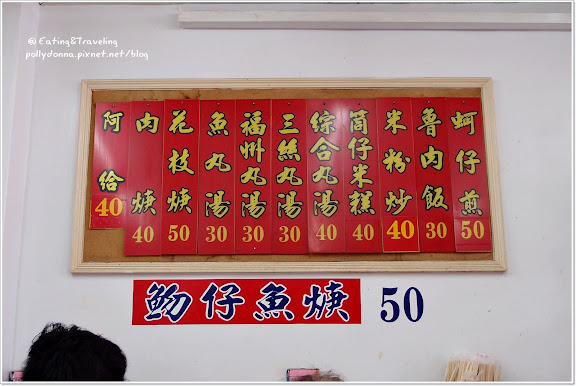 @ Eating&Traveling
pollydonna.pixnet.net/blog
阿給 40
肉焿 40
花枝焿 50
魚丸湯 30
福州丸湯 30
三絲丸湯 30
綜合丸湯 40
筒仔米糕 40
米粉炒 40
魯肉飯 30
蚵仔煎 50
魩仔魚焿 50